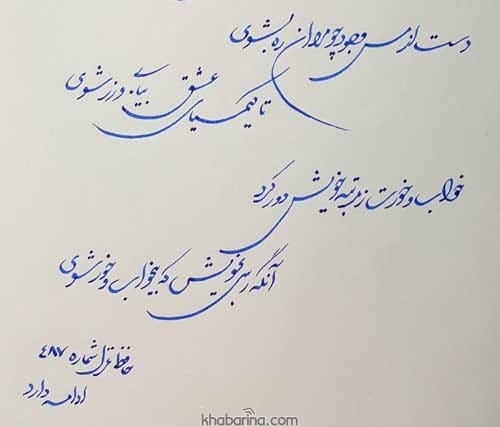 دست از مس وجود چو مردان ره بشوی
تا کیمیای عشق بیابی و زر شوی
خواب و خورت ز مرتبه خویش دور کرد
آنگه رسی بخویش که بیخواب و خور شوی
حافظ غزل شماره ۴۸۷
ادامه دارد
khabarina.com